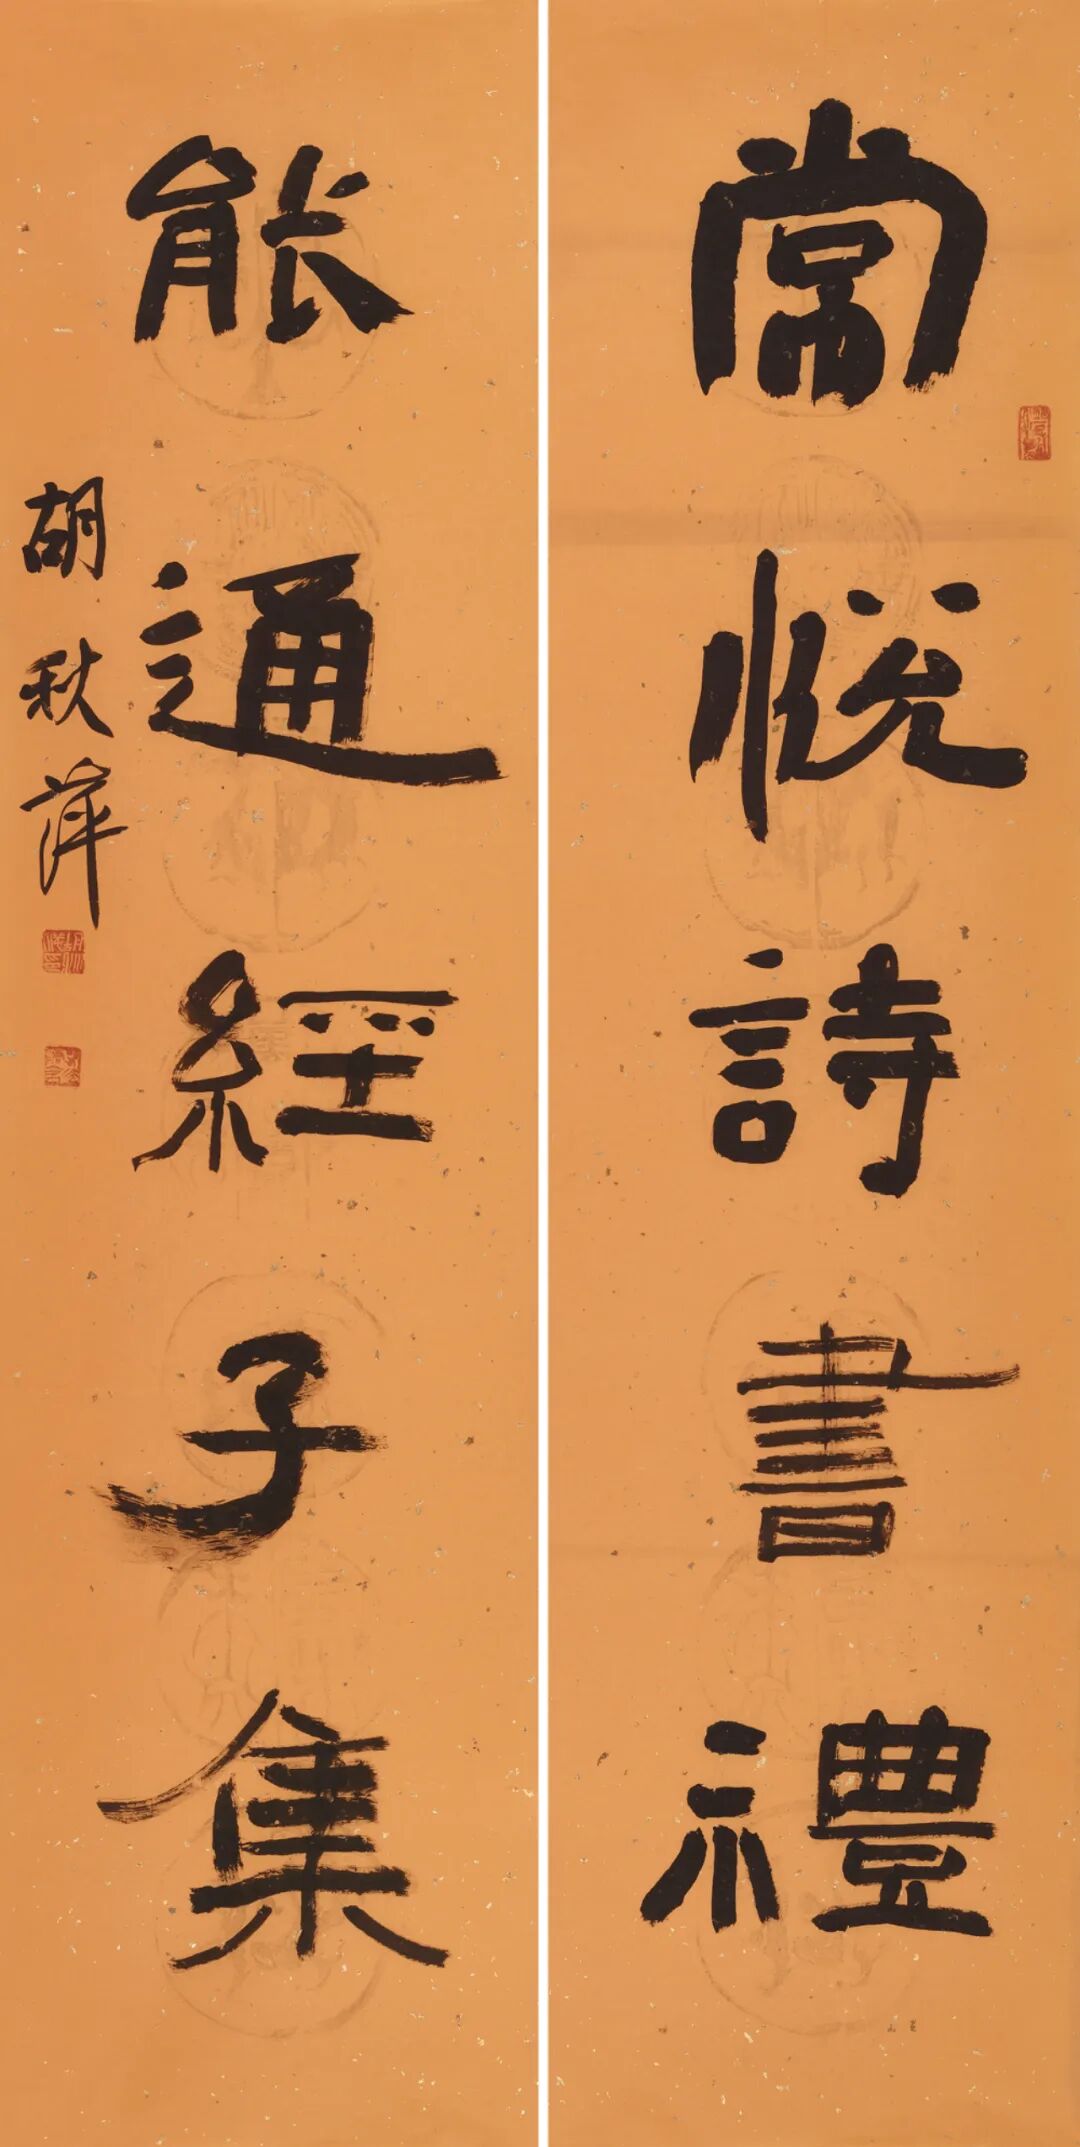 常悦詩書禮
能通經子集
胡秋萍